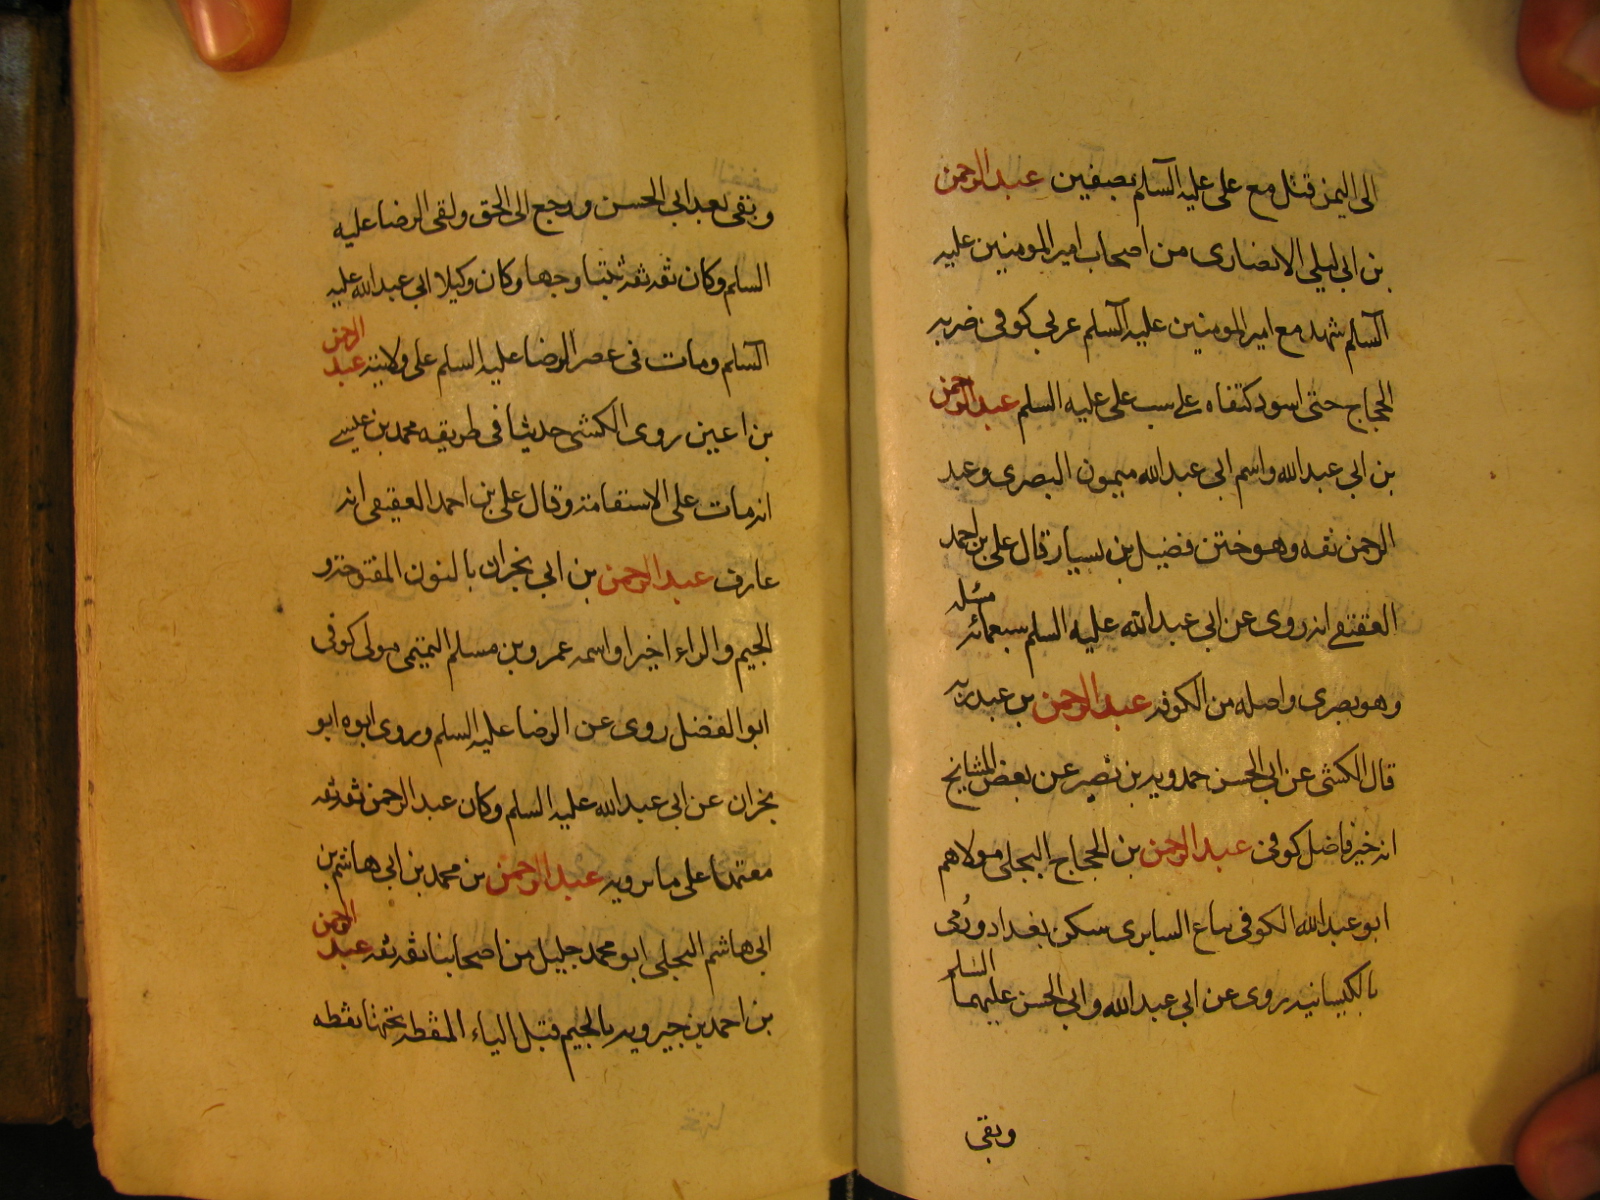 الى اليمن قتل مع على عليه السلم بصفين عبد الرحمن
بن ابى ليلى الانصارى من اصحاب امير المومنين عليه
السلم شهد مع امير المومنين عليه السلم عربى كوفى ضربه
الحجاج حتى اسود كتفاه على سب على عليه السلم عبد الرحمن
بن ابى عبد الله واسم ابى عبد الله ميمون البصرى وعبد
الرحمن ثقه وهو ختن فضيل بن يسار قال على بن احمد
العقيقى انه روى عن ابى عبد الله عليه السلم سبعمائة مسئله
وهو بصرى واصله من الكوفه عبد الرحمن بن عبد ربه
قال الكشى عن ابى الحسن حمدويه بن نصير عن بعض المشايخ
انه خير فاضل كوفى عبد الرحمن بن الحجاج البجلى مولاهم
ابو عبد الله الكوفى بياع السابرى سكن بغداد ورُمى
بالكيسانيه روى عن ابى عبد الله وابى الحسن عليهما السلم
وبقى
وبقى بعد ابى الحسن ورجع الى الحق ولقى الرضا عليه
السلم وكان ثقه ثقه ثبتا وجها وكان وكيلا ابى عبد الله عليه
السلم ومات فى عصر الرضا عليه السلم على ولايته عبد الرحمن
بن اعين روى الكشى حديثا فى طريقه محمد بن عيسى
انه مات على الاستقامة وقال على بن احمد العقيقى انه
عارف عبد الرحمن بن ابى نجران بالنون المفتوحة و
الجيم والراء اخيرا واسمه عمرو بن مسلم التميمى مولى كوفى
ابو الفضل روى عن الرضا عليه السلم وروى ابوه ابو
نجران عن ابى عبد الله عليه السلم وكان عبد الرحمن ثقه ثقه
معتمدا على ما يرويه عبد الرحمن بن محمد بن ابى هاشم بن
ابى هاشم البجلى ابو محمد جليل من اصحابنا ثقه ثقه عبد الرحمن
بن احمد بن جبرويه بالجيم قبل الياء المنقطه تحتها نقطه